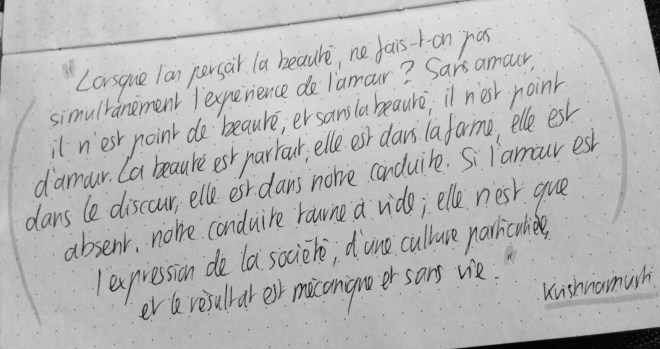 "Lorsque l'on perçoit la beauté, ne fais-t-on pas
simultanément l'expérience de l'amour ? Sans amour,
il n'est point de beauté, et sans la beauté, il n'est point
d'amour. La beauté est partout, elle est dans la forme, elle est
dans le discour, elle est dans notre conduite. Si l'amour est
absent, notre conduite tourne à vide ; elle n'est que
l'expression de la société, d'une culture particulière,
et le résultat est mécanique et sans vie. "
Krishnamurti